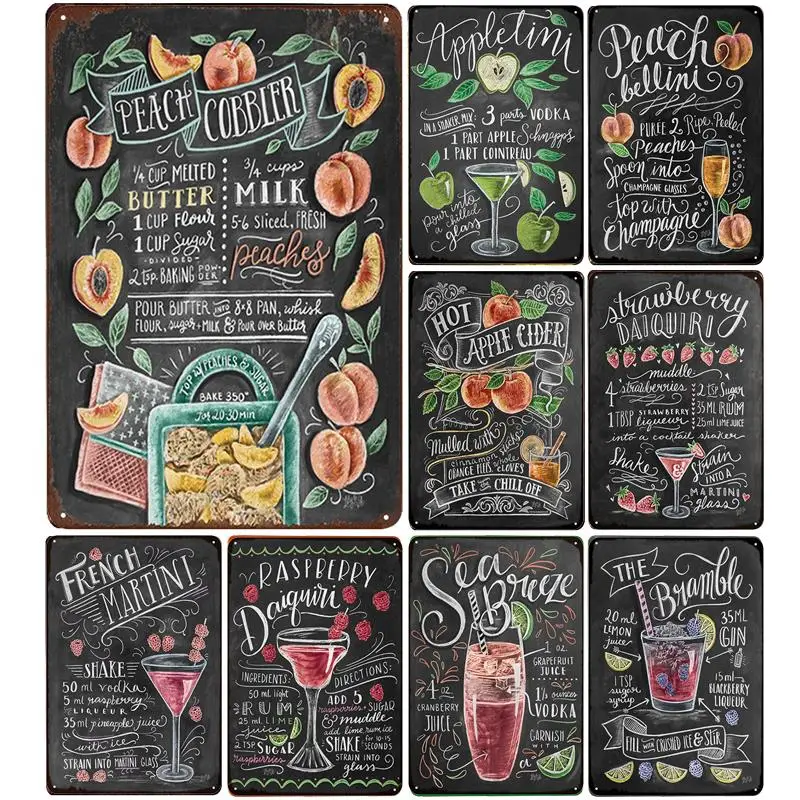 PEACH COBBLER
1/4 CUP MELTED
BUTTER
1 CUP FLOUR
1 CUP Sugar
·DIVIDED·
2 tsp. BAKING POWDER
3/4 cups
MILK
5-6 sliced, FRESH
peaches
POUR BUTTER INTO 8x8 PAN, whisk
FLOUR, sugar + MILK & POUR OVER Butter
TOP W/ PEACHES & SUGAR
BAKE 350°
For 20-30 MIN
Appletini
IN A SHAKER, MIX:
3 parts VODKA
1 PART APPLE Schnapps
1 PART COINTREAU
pour into
a chilled
glass
Peach
bellini
PUREE 2 Ripe, Peeled
Peaches
Spoon into
CHAMPAGNE GLASSES
top with
Champagne
HOT
APPLE CIDER
Mulled with
cinnamon sticks
ORANGE PEELS whole CLOVES
TAKE THE CHILL OFF
strawberry
DAIQUIRI
muddle
4 strawberries
1 TBSP STRAWBERRY
liqueur
2 tsp Sugar
35 ML RUM
25 ml LIME JUICE
into a cocktail shaker
Shake
&
Strain
INTO A
MARTINI
glass
FRENCH
MARTINI
SHAKE
50 ml vodka
5 ml raspberry
LIQUEUR
35 ml pineapple juice
with ice
STRAIN INTO MARTINI GLASS
RASPBERRY
Daiquiri
INGREDIENTS:
50 ml light
RUM
25 ML LIME
juice
2 TSP SUGAR
raspberries
DIRECTIONS:
ADD 5
raspberries + SUGAR
& muddle
add lime, rum, ice
SHAKE for 10-15 SECONDS
STRAIN into
GLASS
Sea
Breeze
4 OZ
CRANBERRY
JUICE
1 OZ.
GRAPEFRUIT
JUICE
1 1/2 ounces
VODKA
GARNISH
WITH
THE
Bramble
20 ml
LEMON
juice
1 TSP
sugar
syrup
35ML
GIN
15 ml
BLACKBERRY
LIQUEUR
FILL WITH CRUSHED ICE & STIR